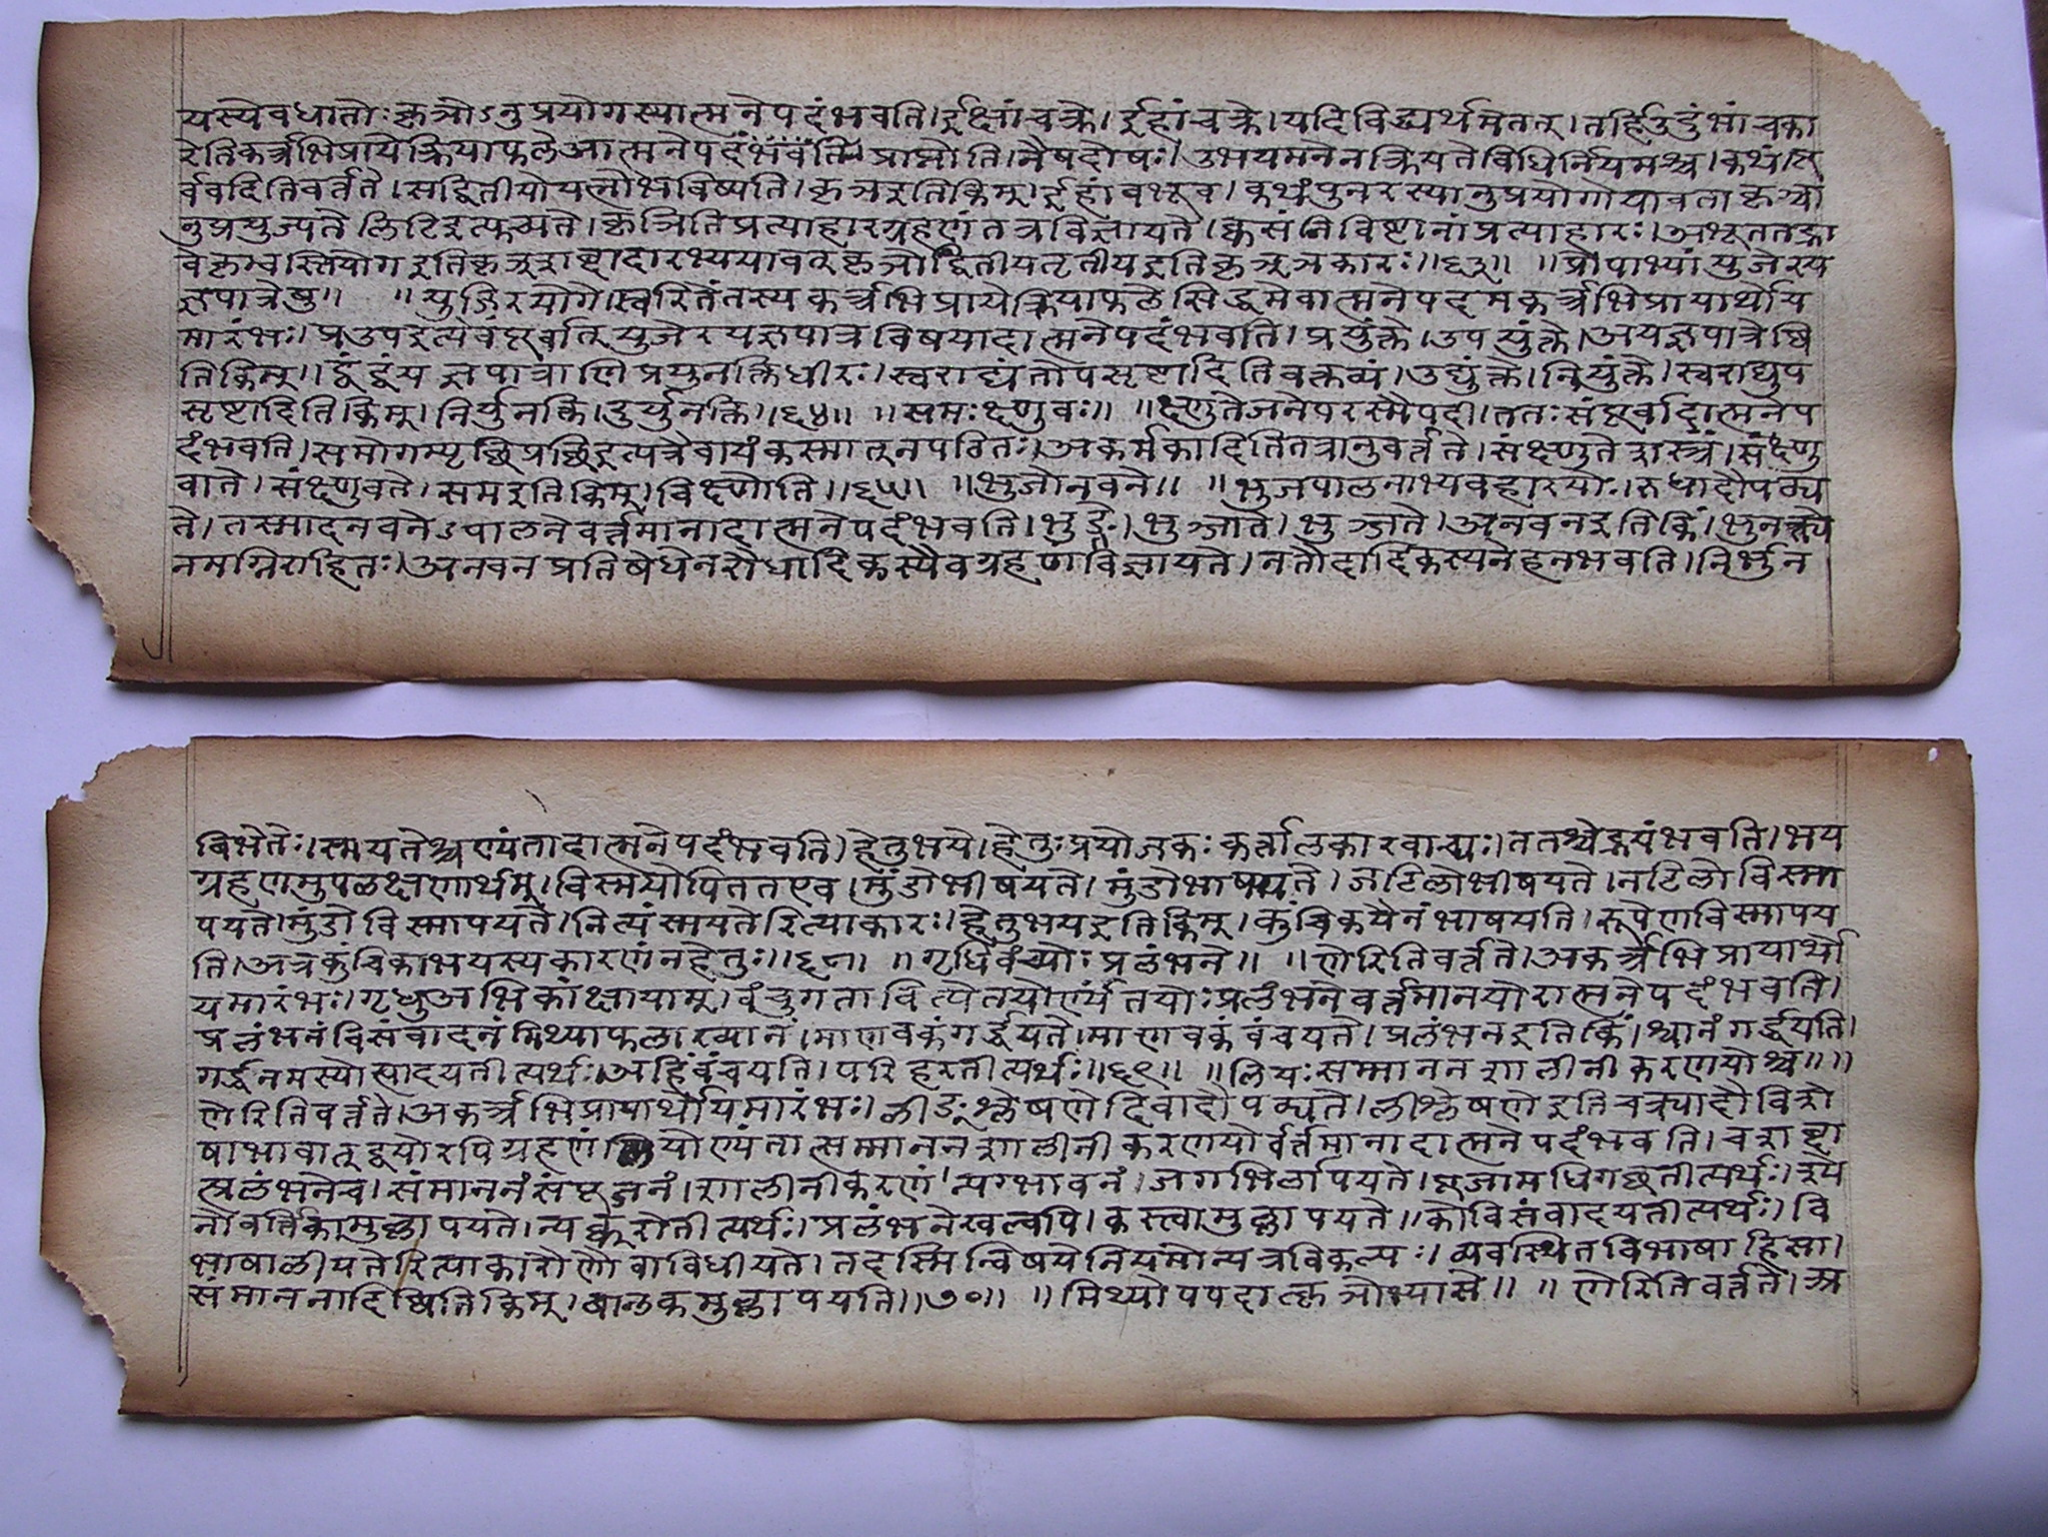 यस्येवधातोः कृञोऽनुप्रयोगस्यात्मनेपदंभवति।ईक्षांचक्रे।ईहांचक्रे।यदिविद्ध्यर्थमतत्।तर्हिउदुंभांचका
रेतिकर्त्रभिप्रायेक्रियाफलेआत्मनेपदंभवति।प्राप्नोति।नैषदोषः।उभयमनेनक्रियतेविधिर्नियमश्च।कथं।पू
र्ववदितिवर्तते।सद्वितीयोयत्नोभविष्यति।कृञइतिकिम्।ईहांबभूव।कथंपुनरस्यानुप्रयोगोयावताकृञ्चा
नुप्रयुज्यतेलिटिइत्युच्यते।कृञितिप्रत्याहारग्रहणंतत्रविज्ञायते।क्वसंनिविष्टानांप्रत्याहारः।अभूततद्भा
वेकृभ्वस्तियोगइतिकृञ्शब्दादारभ्ययावत्कृञोद्वितीयतृतीयइतिकृञ्ञकारः॥६३॥ ॥प्रोपाभ्यांयुजेरय
ज्ञपात्रेषु॥ ॥युजिरयोगे।स्वरितंतस्यकर्त्रभिप्रायेक्रियाफलेसिद्धमेवात्मनेपदमकर्त्रभिप्रायार्थोय
मारंभः।प्रउपइत्येवंपूर्वात्युजेरयज्ञपात्रविषयादात्मनेपदंभवति।प्रयुंक्ते।उपयुंक्ते।अयज्ञपात्रेष्वि
तिकिम्।द्वंद्वंयज्ञपात्राणिप्रयुनक्तिधीरः।स्वराद्यंतोपसृष्टादितिवक्तव्यं।उद्युंक्ते।नियुंक्ते।स्वराद्युप
सृष्टादितिकिम्।निर्युनक्ति।दुर्युनक्ति॥६४॥ ॥समःक्ष्णुवः॥ ॥क्ष्णुतेजनेपरस्मैपदी।ततःसंपूर्वादात्मनेप
दंभवति।समोगम्यृच्छिप्रच्छिइत्यत्रैवायंकस्मात्नपठितः।अकर्मकादितितत्रानुवर्त्तते।संक्ष्णुतेशस्त्रं।संक्ष्णु
वाते।संक्ष्णुवते।समइतिकिम्।विक्ष्णौति॥६५॥ ॥भुजोनवने॥ ॥भुजपालनाभ्यवहारयोः।रुधादौपठ्य
ते।तस्मादनवनेऽपालनेवर्त्तमानादात्मनेपदंभवति।भुङ्क्ते।भुञ्जाते।भुञ्जते।अनवनइतिकिं।भुनक्त्ये
नमग्निराहितः।अनवनप्रतिषेधेनरौधादिकस्यैवग्रहणंविज्ञायते।नतौदादिकस्यनेहनभवति।निर्भुज
बिभेतेः।स्मयतेश्चण्यंतादात्मनेपदंभवति।हेतुभये।हेतुःप्रयोजकः कर्त्तालकारवाच्यः।ततश्चेद्भयंभवति।भय
ग्रहणमुपलक्षणार्थम्।विस्मयोपिततएव।मुंडोभीषयते।मुंडोभाषयते।जटिलोभीषयते।जटिलोविस्मा
पयते।मुंडोविस्मापयते।नित्यंस्मयतेरित्याकारः।हेतुभयइतिकिम्।कुंचिकयैनंभाषयति।रूपेणविस्मापय
ति।अत्रकुंचिकाभयस्यकारणंनहेतुः॥६८॥ ॥गृधिवंच्योःप्रलंभने॥ ॥णेरितिवर्त्तते।अकर्त्रभिप्रायार्थो
यमारंभः।गृधुअभिकांक्षायाम्।वंचुगतावित्येतयोर्ण्यंतयोःप्रलंभनेवर्त्तमानयोरात्मनेपदंभवति।
प्रलंभनंविसंवादनंमिथ्याफलाख्यानं।माणवकंगर्द्धयते।माणवकंवंचयते।प्रलंभनइतिकिं।श्वानंगर्द्धयति।
गर्द्धनमस्योत्पादयतीत्यर्थः।अहिंवंचयति।परिहरतीत्यर्थः॥६९॥ ॥लियःसम्माननशालीनीकरणयोश्च॥॥
णेरितिवर्त्तते।अकर्त्रभिप्रायार्थोयमारंभः।लीङ्श्लेषणेदिवादौपठ्यते।लीश्लेषणेइतिचक्र्यादौविशे
षाभावात्द्वयोरपिग्रहणंलियोण्यंतात्सम्माननशालीनीकरणयोर्वर्तमानादात्मनेपदंभवति।चशब्दा
त्प्रलंभनेच।संमाननंसंपूजनं।शालीनीकरणंन्यग्भावनं।जटाभिर्लापयते।पूजामधिगच्छतीत्यर्थः।श्ये
नोवर्तिकामुल्लापयते।न्यक्करोतीत्यर्थः।प्रलंभनेखल्वपि।कस्त्वामुल्लापयते।कोविसंवादयतीत्यर्थः।वि
भाषालीयतेरित्याकारोणेवाविधीयते।तदस्मिन्विषयेनियमोन्यत्रविकल्पः।व्यवस्थितविभाषाहिसा।
संमाननादिष्वितिकिम्।बालकमुल्लापयति॥७०॥ ॥मिथ्योपपदात्कृञोभ्यासे॥ ॥णेरितिवर्त्तते।अ